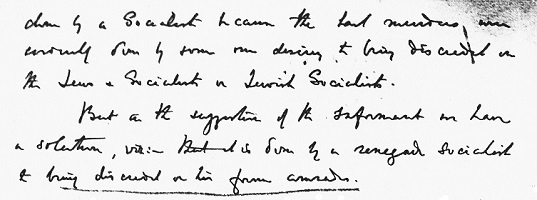 done by a Socialist because the last murders were
evidently done by some one desiring to bring discredit on
the Jews & Socialists or Jewish Socialists.
But in the suggestion of the informant we have
a solution, viz:- But it is done by a renegade socialist
to bring discredit on his former comrades.